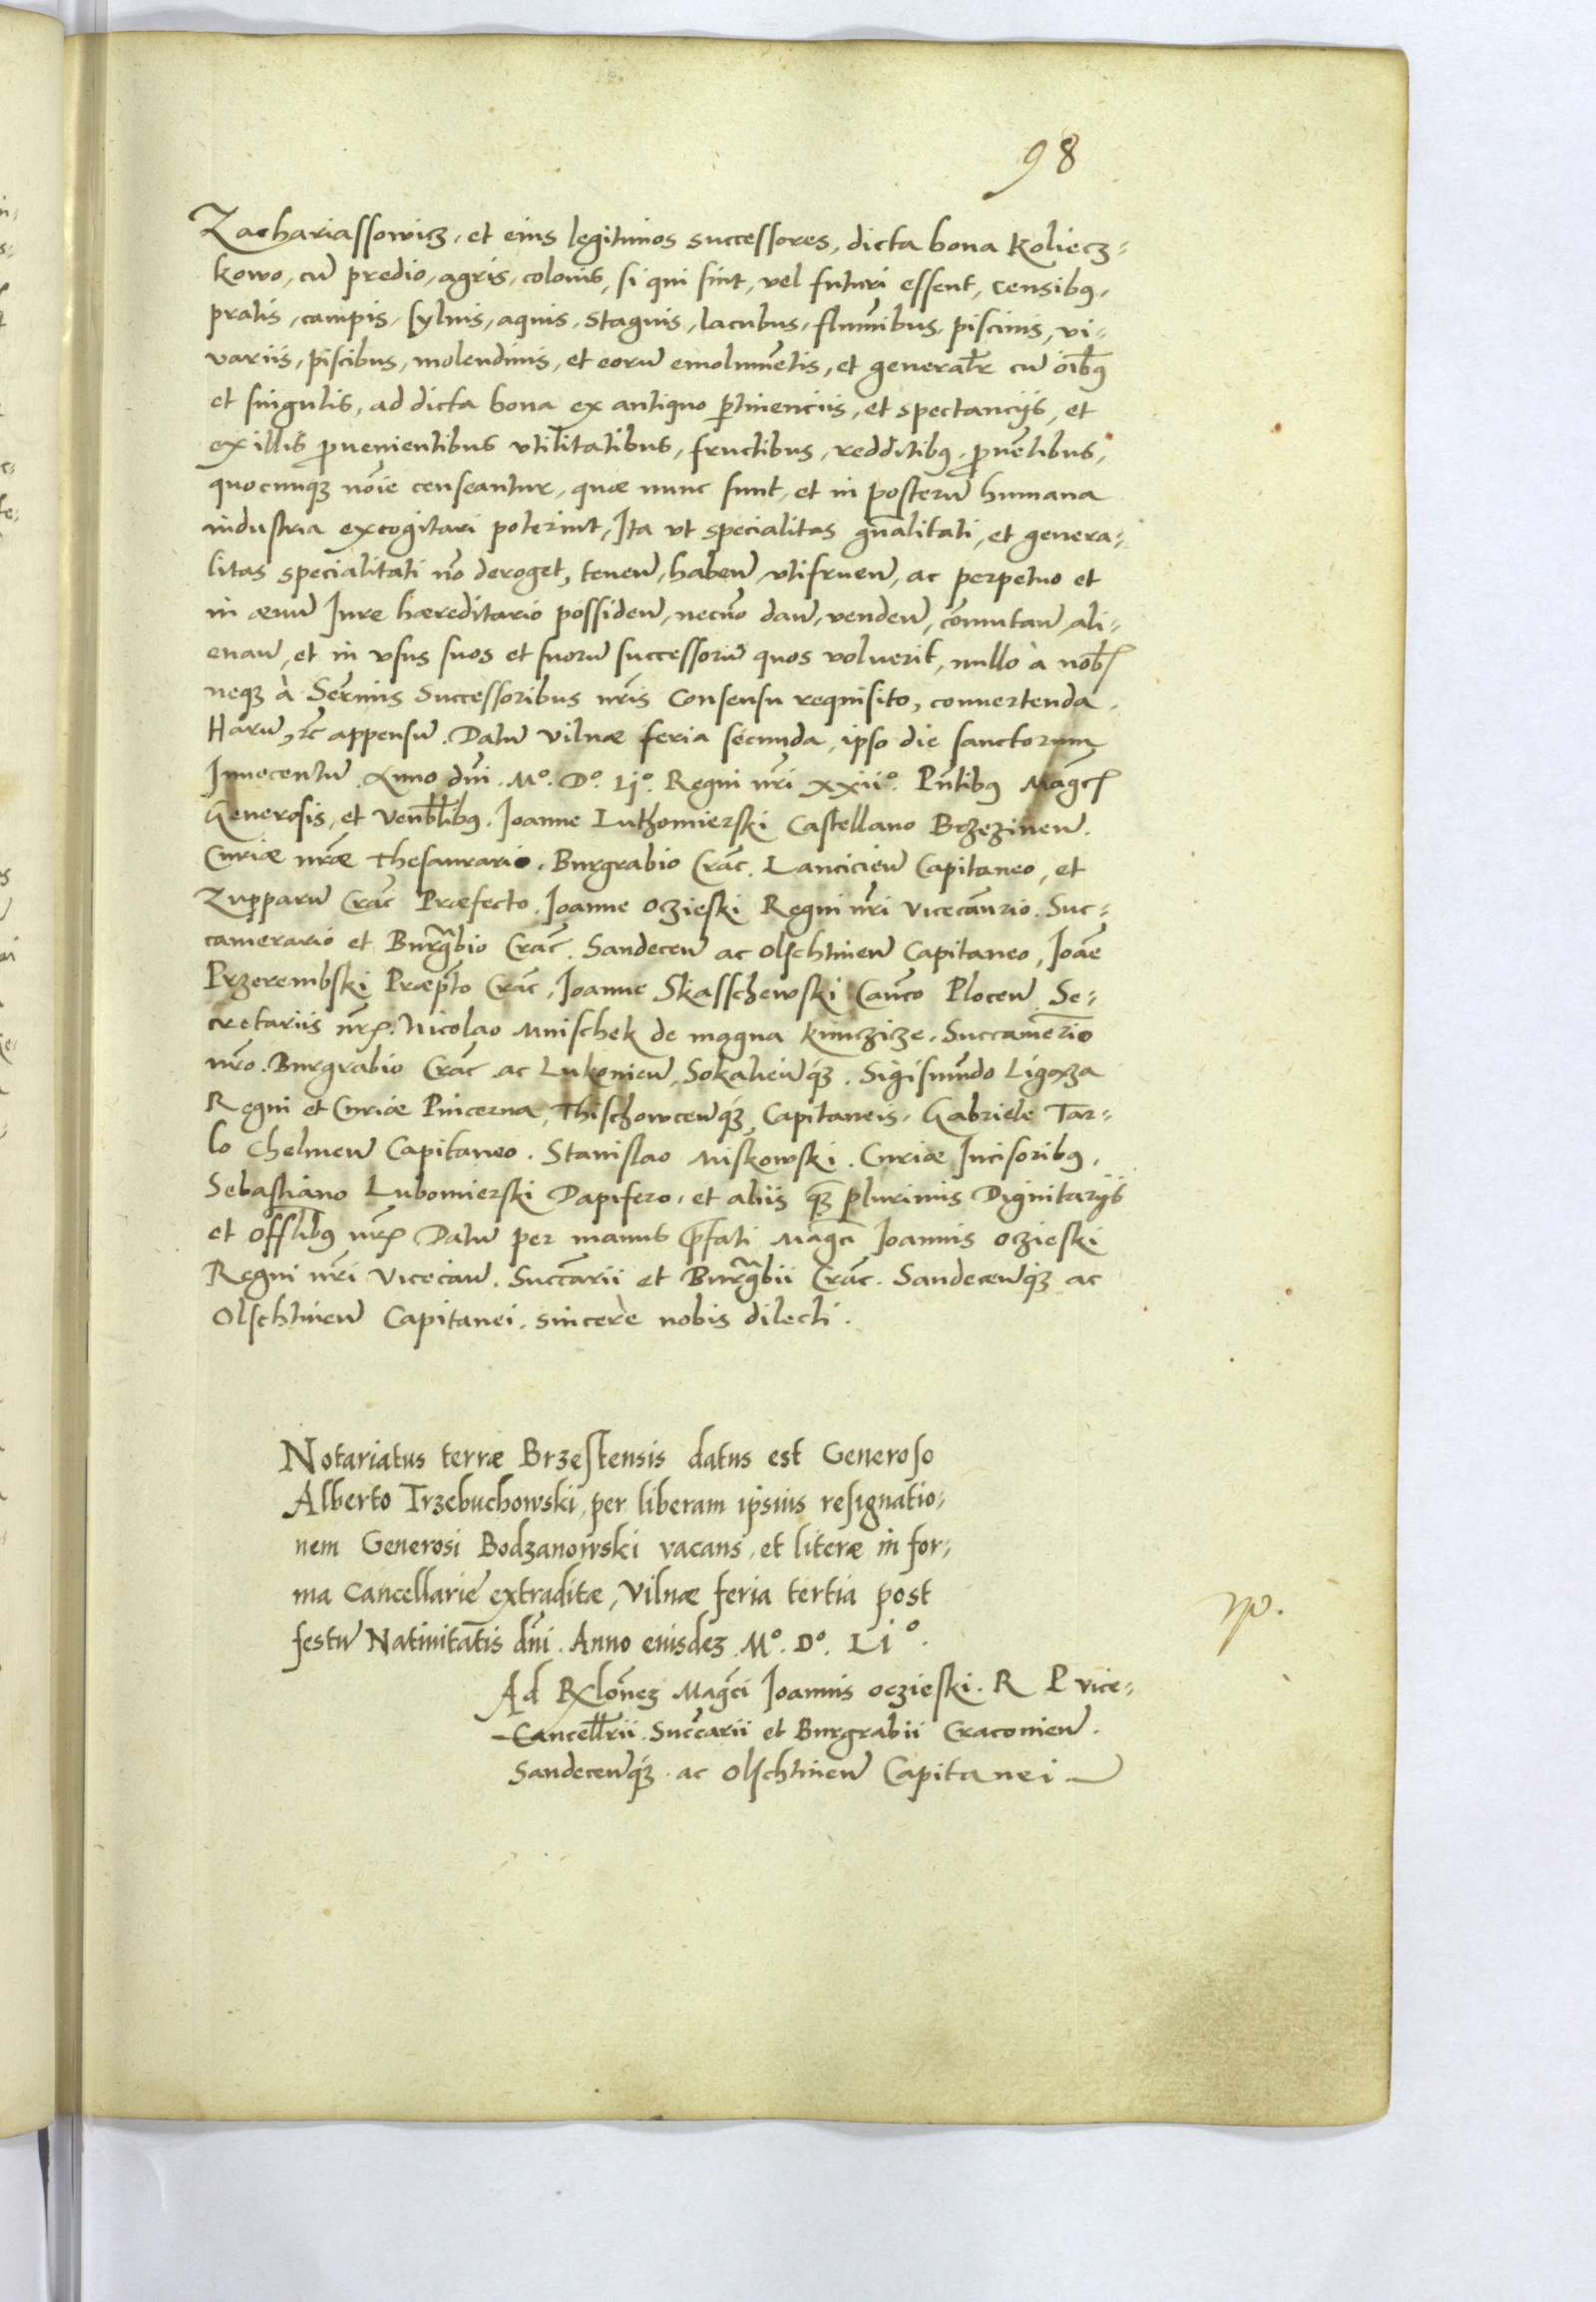 98
Zachariassowicz, et eius legitimos successores, dicta bona Koliecz-
kowo, cū predio, agris, colonis, si qui sint, vel futuri essent, censibꝰ,
pratis, campis, sylvis, aquis, stagnis, lacubus, fluminibus, piscinis, vi-
variis, piscibus, molendinis, et eorū emolumētis, et generalr̄ cū oībꝰ
et singulis, ad dicta bona ex antiquo ꝑtinenciis, et spectancijs, et
ex illis ꝓuenientibus vtilitatibus, fructibus, redditibꝰ, ꝓuētibus,
quocunqꝫ nōie censeantur, quæ nunc sunt, et in posterū humana
industria excogitari poterint, Ita vt specialitas gn̄alitati, et genera-
litas specialitati nō deroget, tenen̄, haben̄, vtifruen̄, ac perpetuo et
in æuū Iure hæreditario possiden̄, necnō dan̄, venden̄, cōmutan̄, ali-
enan̄, et in vsus suos et suorū successorū quos voluerit, nullo à nob̄
neqꝫ à Serm̄is Successoribus nr̄is Consensu requisito, conuertenda.
Harū, ꝛc̄ appensū. Datū Vilnæ feria secunda, ipso die sanctorum
Innocentū. Anno dn̄i. Mº. Dº. Ljº. Regni nr̄i xxiiº. Pn̄tibꝰ Mag̃c̄
Generosis, et Ven̄bl̄ibꝰ. Ioanne Luthomierski Castellano Brzezinen̄.
Curiæ nr̄æ Thesaurario. Burgrabio Crac̄. Lancicien̄ Capitaneo, et
Zupparū Crac̄ Præfecto. Ioanne Oczieski Regni nr̄i Vicecan̄rio. Suc-
camerario et Burgr̄bio Crac̄. Sandecen̄ ac Olschtinen̄ Capitaneo, Ioāe
Przerembski Præpt̄o Crac̄, Ioanne Skasschewski Can̄co Plocen̄ Se-
cretariis nr̄. Nicolao Mnischek de magna Kunczicze. Succamer̄io
nr̄o. Burgrabio Crac̄ ac Lukonien̄, Sokalien̄qꝫ. Sigismundo Ligęza
Regni et Curiæ Pincerna, Thischowcen̄qꝫ, Capitaneis. Gabriele Tar-
lo Chelmen̄ Capitaneo. Stanislao Miskowski. Curiæ Incisoribꝰ.
Sebastiano Lubomierski Dapifero, et aliis qꝫ plurimis Dignitarijs
et Offl̄ibꝰ nr̄. Datū per manus p̄fati Mag̃ci Ioannis Oczieski
Regni nr̄i Vicecan̄. Succ̄arii et Burgr̄bii Crac̄. Sandecen̄qꝫ ac
Olschtinen̄ Capitanei. sincere nobis dilecti.
Notariatus terræ Brzestensis datus est Generoso
Alberto Trzebuchowski, per liberam ipsius resignatio-
nem Generosi Bodzanowski vacans, et literæ in for-
ma Cancellarie extraditæ, Vilnæ feria tertia post
festū Natiuitatis dn̄i. Anno eiusdeꝫ. Mº. Dº. Liº.
Ad Rℓōneꝫ Mag̃ci Ioannis Oczieski. R P vice-
Cancell̄rii. Succ̄arii et Burgrabii Cracouien̄.
Sandecen̄qꝫ. ac Olschtinen̄ Capitanei